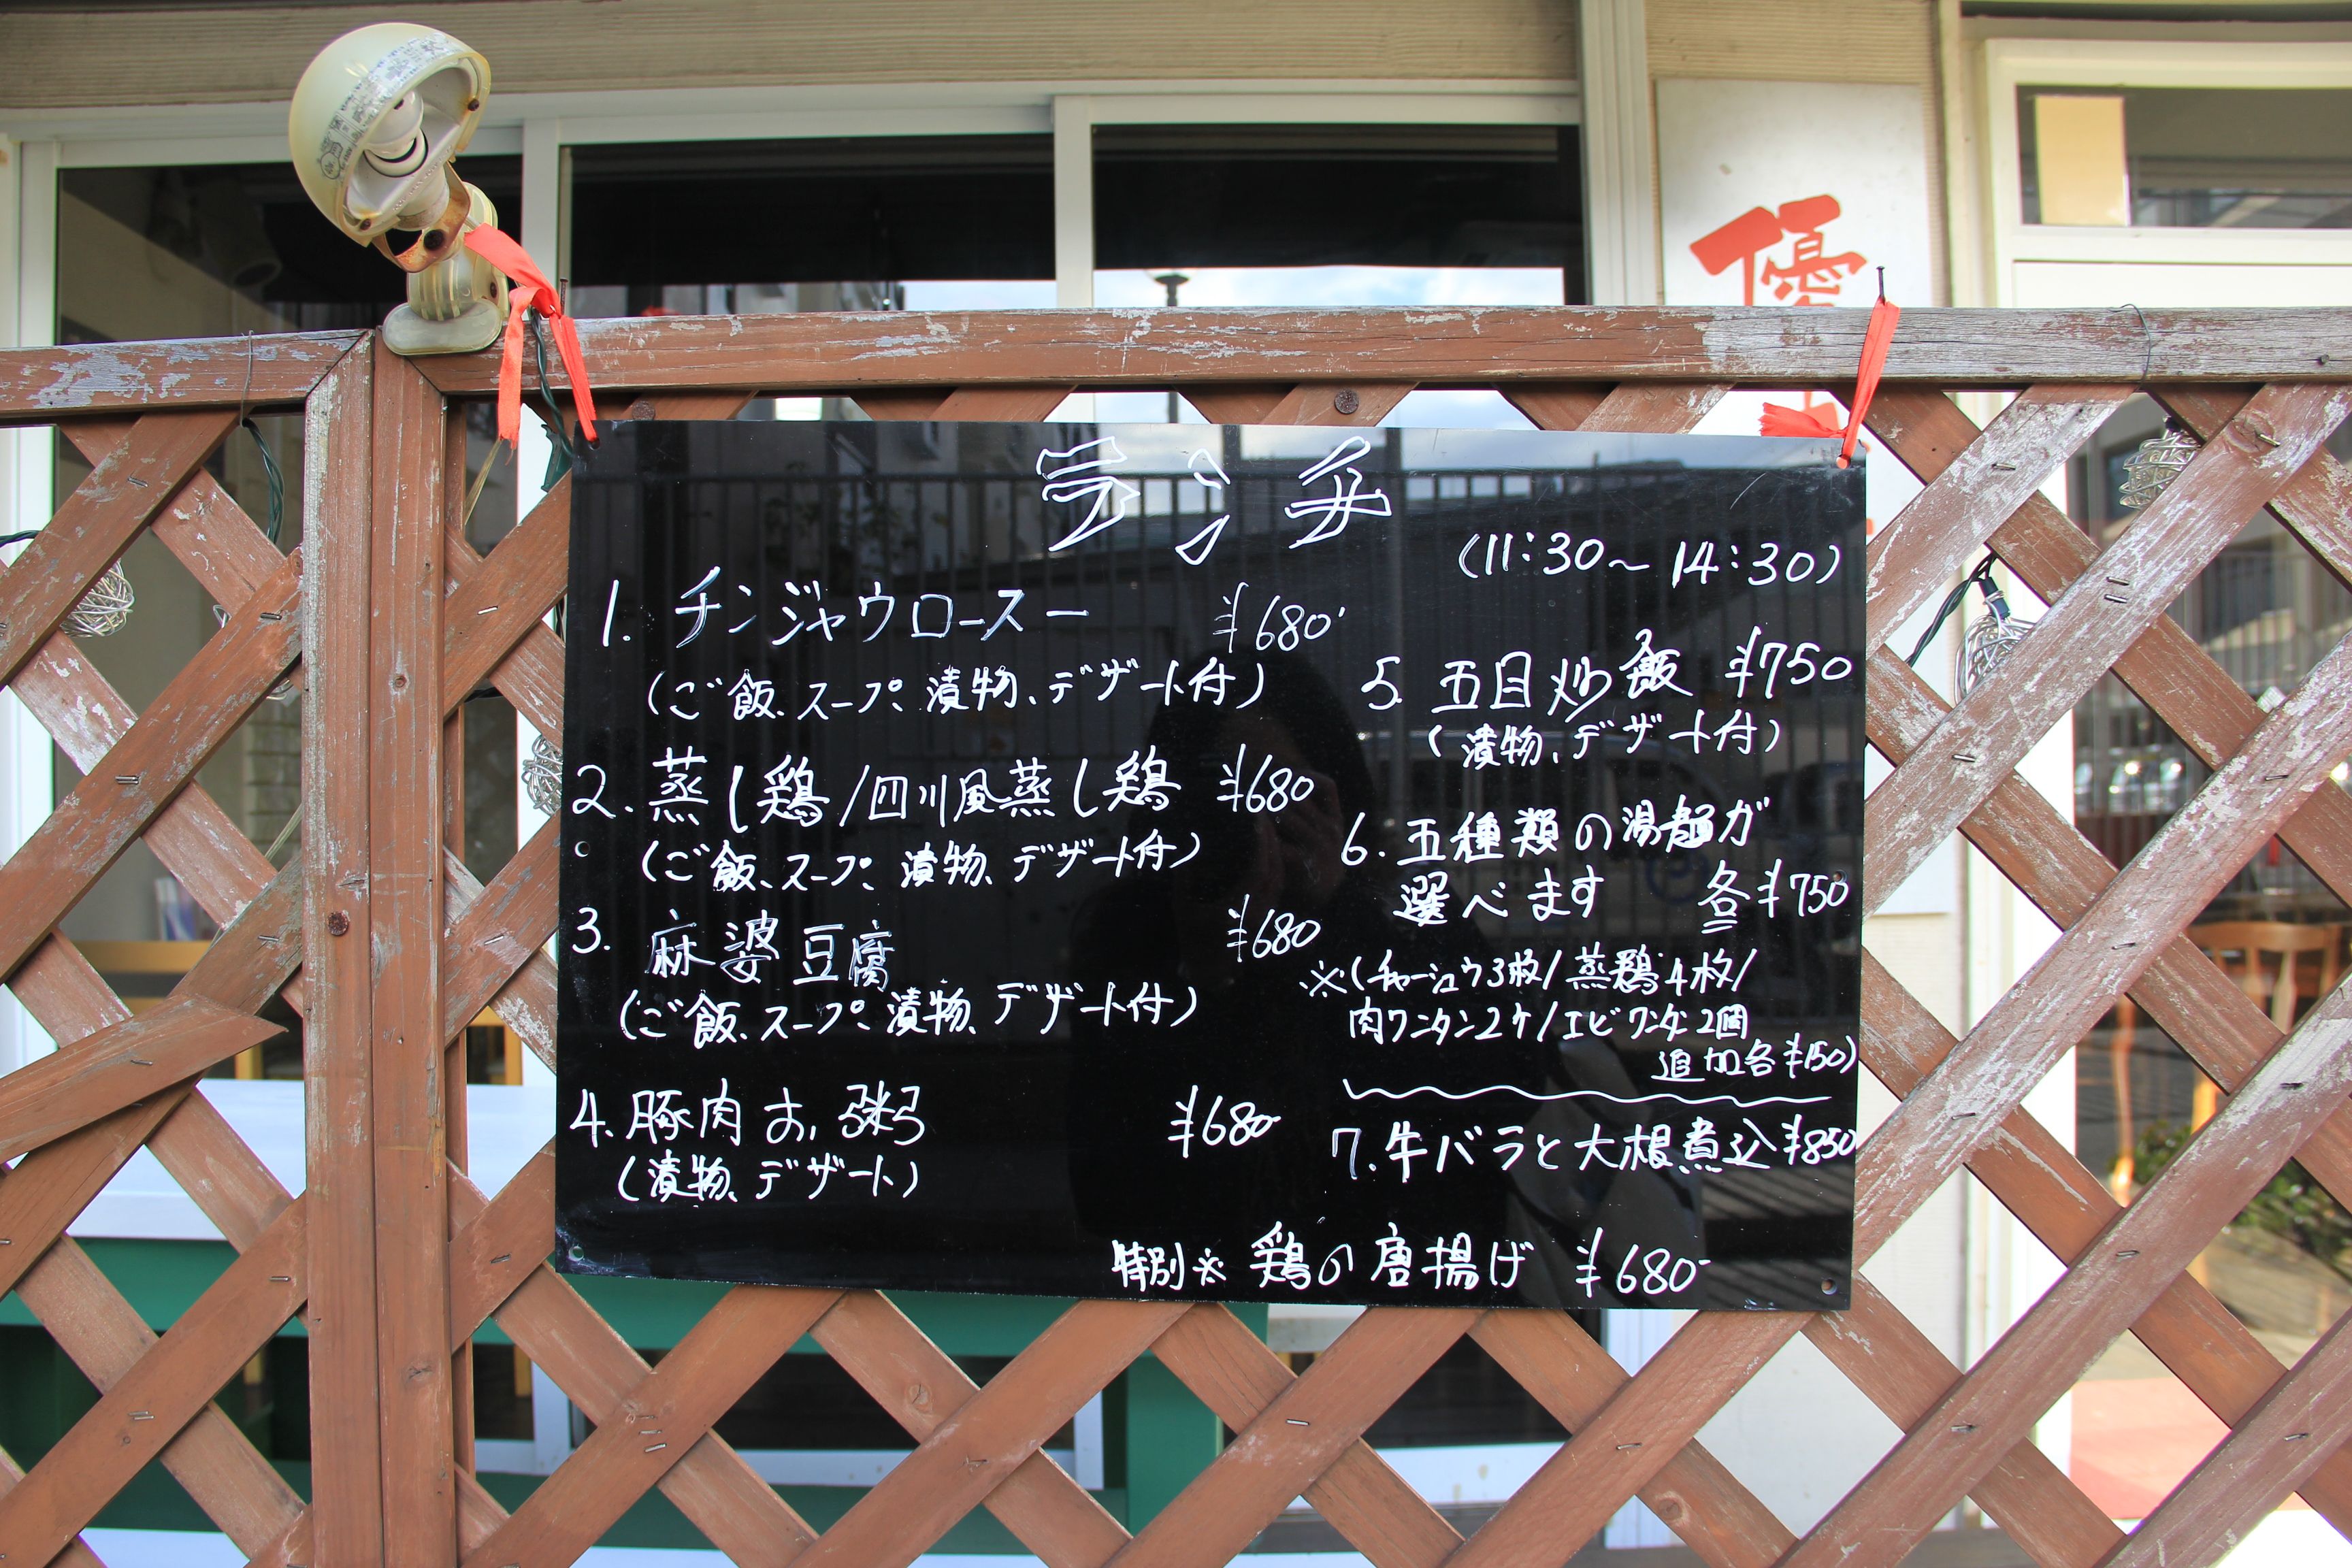 優
ランチ
(11:30～14:30)
1. チンジャウロースー ¥680
(ご飯、スープ、漬物、デザート付)
2. 蒸し鶏/四川風蒸し鶏 ¥680
(ご飯、スープ、漬物、デザート付)
3. 麻婆豆腐 ¥680
(ご飯、スープ、漬物、デザート付)
4. 豚肉お粥 ¥680
(漬物、デザート)
5. 五目炒飯 ¥750
(漬物、デザート付)
6. 五種類の湯麺が
選べます 各¥750
※(チャーシュウ3枚/蒸鶏4枚/
肉ワンタン2ケ/エビワンタン2個
追加各¥150)
7. 牛バラと大根煮込 ¥850
特別※ 鶏の唐揚げ ¥680